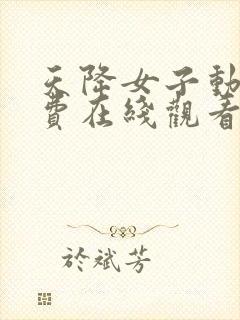 天降女子動
費在綫觀看
於斌芳